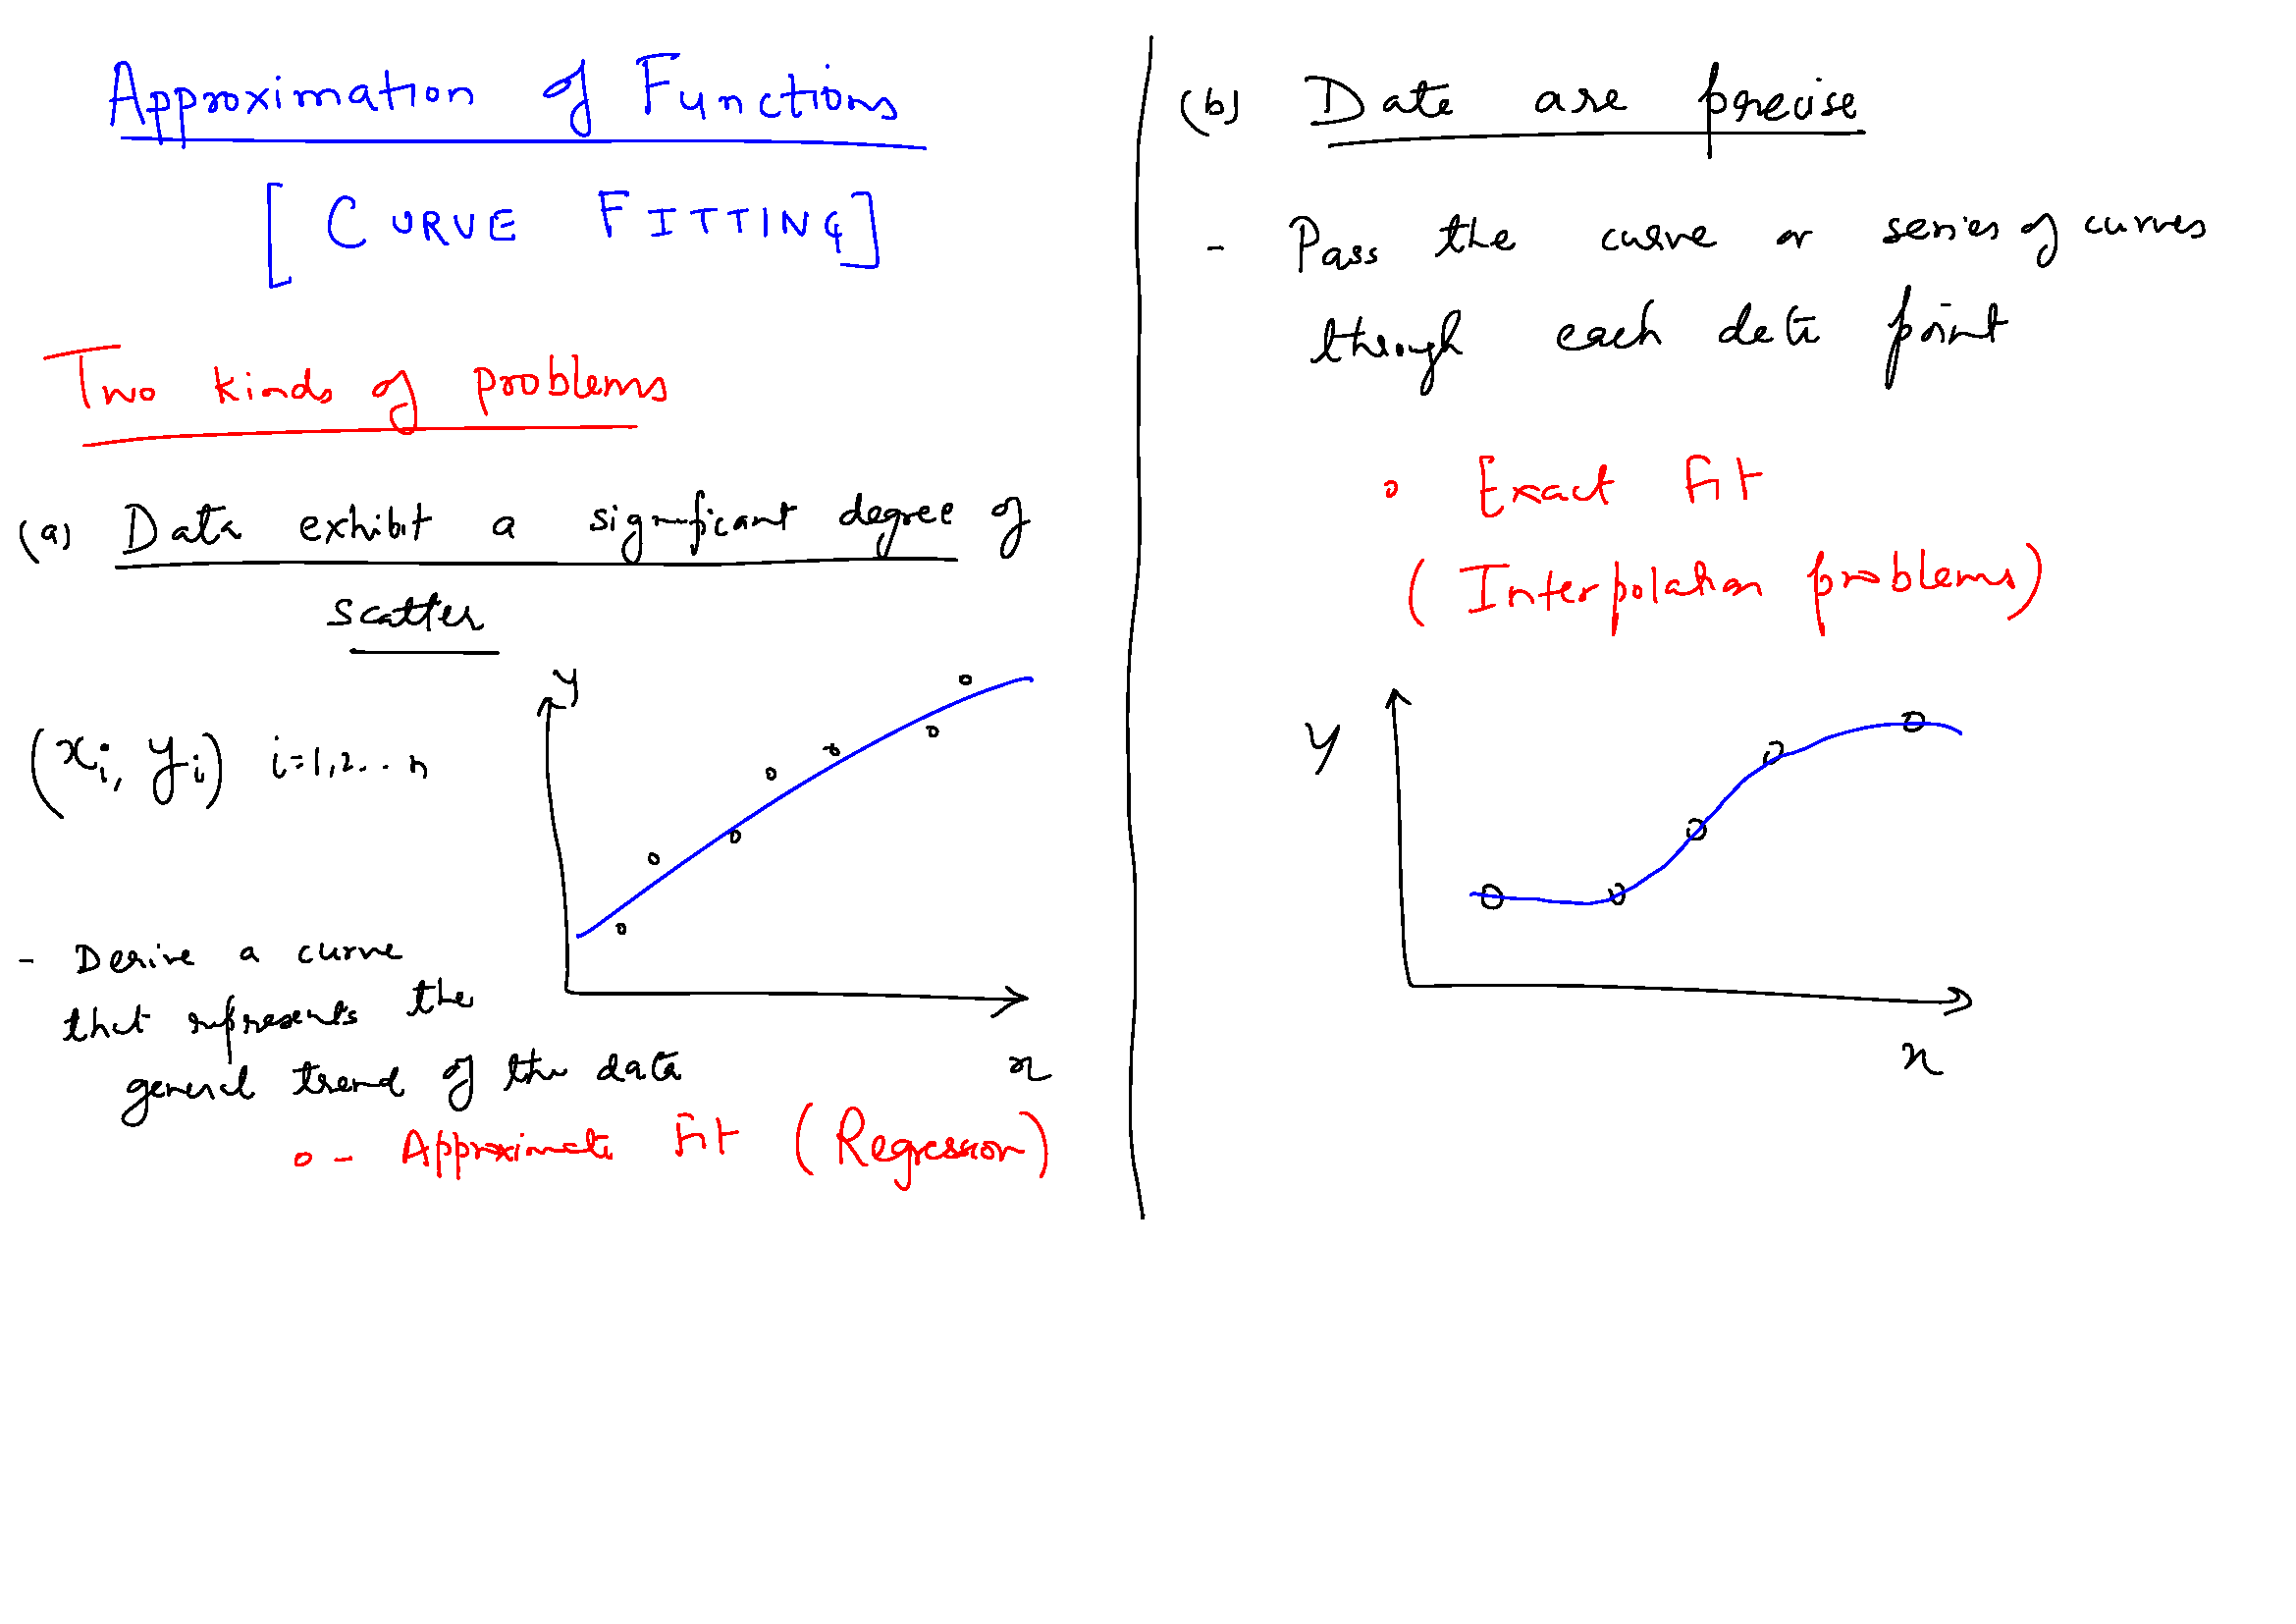 Approximation of Functions
[CURVE FITTING]
Two kinds of problems
(a) Data exhibit a significant degree of
scatter
(xi, yi) i=1,2...n
y
x
- Derive a curve
that represents the
general trend of the data
o - Approximate Fit (Regression)
(b) Data are precise
- Pass the curve or series of curves
through each data point
o Exact Fit
(Interpolation problems)
y
x